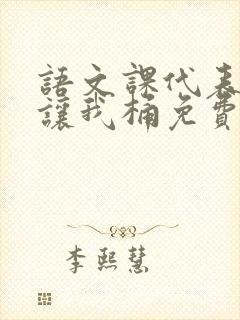 語文課代表
讓我桶免費
李熙慧